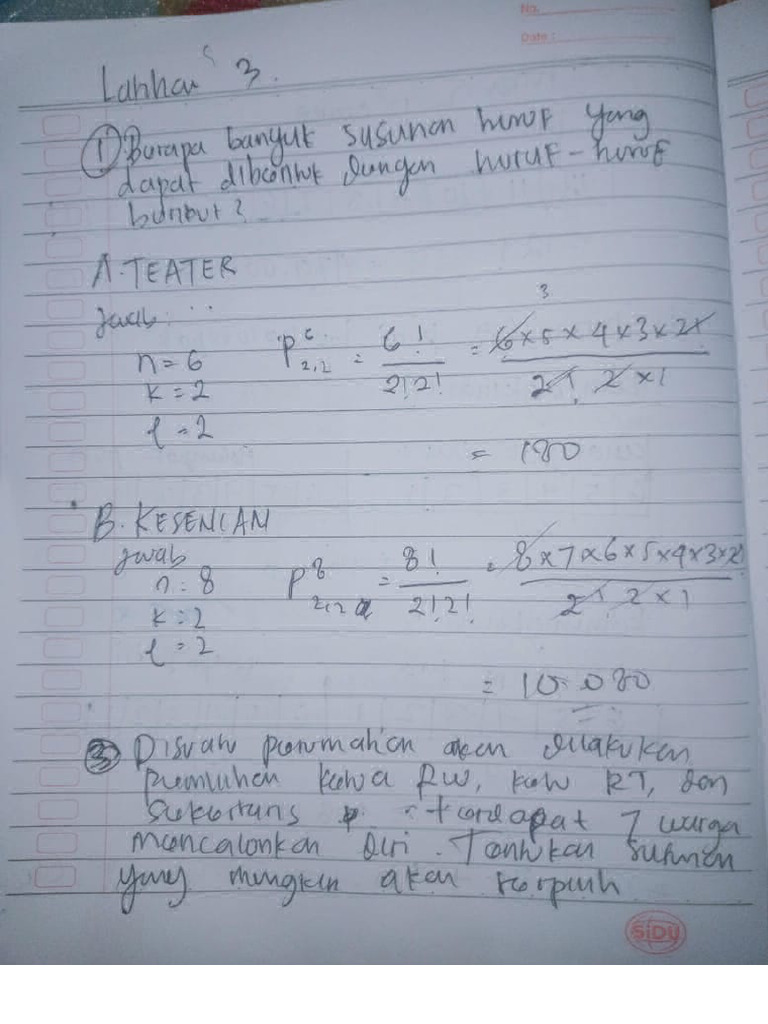 No.
Date:
Latihan 3.
① Berapa banyak susunan huruf yang
dapat dibentuk dengan huruf-huruf
berikut?
A. TEATER
Jwab:
n = 6
k = 2
l = 2
P⁶₂,₂ = 6! / 2!2! = 6×5×4×3×2×1 / 2×1 2×1
3
= 180
B. KESENIAN
Jwab
n = 8
k = 2
l = 2
P⁸₂,₂ = 8! / 2!2! = 8×7×6×5×4×3×2 / 2×1 2×1
= 10.080
③ Disuatu perumahan akan dilakukan
pemilihan ketua RW, ketua RT, dan
Sekertaris terdapat 7 warga
mencalonkan diri. Tentukan susunan
yang mungkin akan terpilih
SiDU